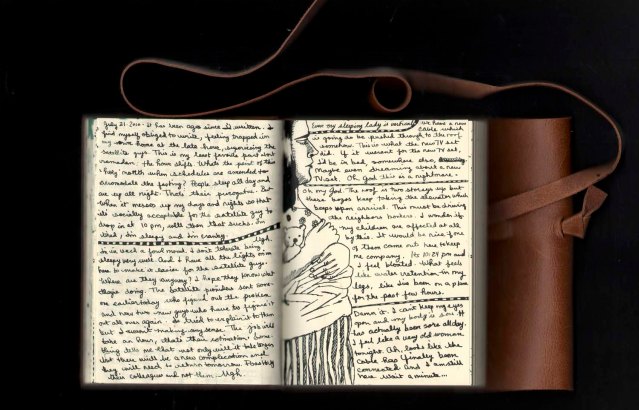 July 21. 2010. it has been ages since I written. I
find myself obliged to write, feeling trapped in
my own home at the late hour, supervising the
satellite guys. This is my least favorite part about
ramadan. The hour shifts. What's the point of this
'holy' month when schedules are amended to
accomodate the fasting? People sleep all day and
are up all night. That's their perogative. But
when it messes up my days and nights so that
it's socially acceptable for the satellite guy to
drop in at 10 pm, well then that sucks. I'm
tired, I'm sleepy and I'm cranky. Ugh.
I'm in such a foul mood. I don't tolerate being
sleepy very well. And I have all the lights on
here to make it easier for the satellite guys.
Where are they anyway? I hope they know what
they're doing. The satellite provider sent some-
one earlier today who figured out the problem.
and now two new guys who have to figure it
out all over again. So I tried to explain it to them
but I wasn't making any sense. The job will
take an hour, that's their estimation! Some-
thing tells me that not only will it take longer
but there will be a new complication and
they will need to return tomorrow. Possibly
their colleagues and not them. Ugh.
Even my sleeping lady is vertical! We have a new
cable which
is going to be pushed through to the roof
somehow. This is what the new TV set
did. If it weren't for the new TV set,
I'd be in bed, somewhere else, dreaming.
Maybe even dreaming about a new
TV set. Oh God this is a nightmare.
Oh my God. The roof is two storeys up but
these boyos keep taking the elevator which
beeps upon arrival. This must be driving
the neighbors bonkers. I wonder if
my children are affected at all
by this. It would be nice if one
of them came out here to keep
me company. It's 10:24 pm and
I feel bloated. What feels
like water retention in my
legs, like I've been on a plane
for the past few hours.
Damn it. I can't keep my eyes
open and my body is sore. It
has actually been sore all day.
I feel like a very old woman
tonight. Ah, looks like the
cable has finally been
connected and I am still
here. Wait a minute...